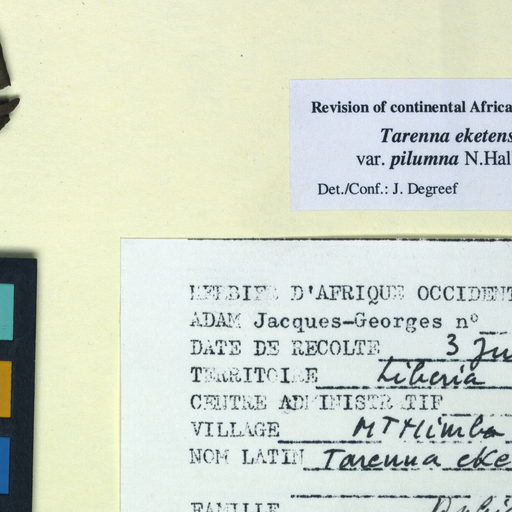 Revision of continental Africa
Tarenna eketens
var. pilumna N.Hal
Det./Conf.: J. Degreef
HERBIER D'AFRIQUE OCCIDENT
ADAM Jacques-Georges n°
DATE DE RECOLTE 3 Ju
TERRITOIRE Liberia
CENTRE ADMINISTRATIF
VILLAGE MT Nimba
NOM LATIN Tarenna eke
FAMILLE Rubi